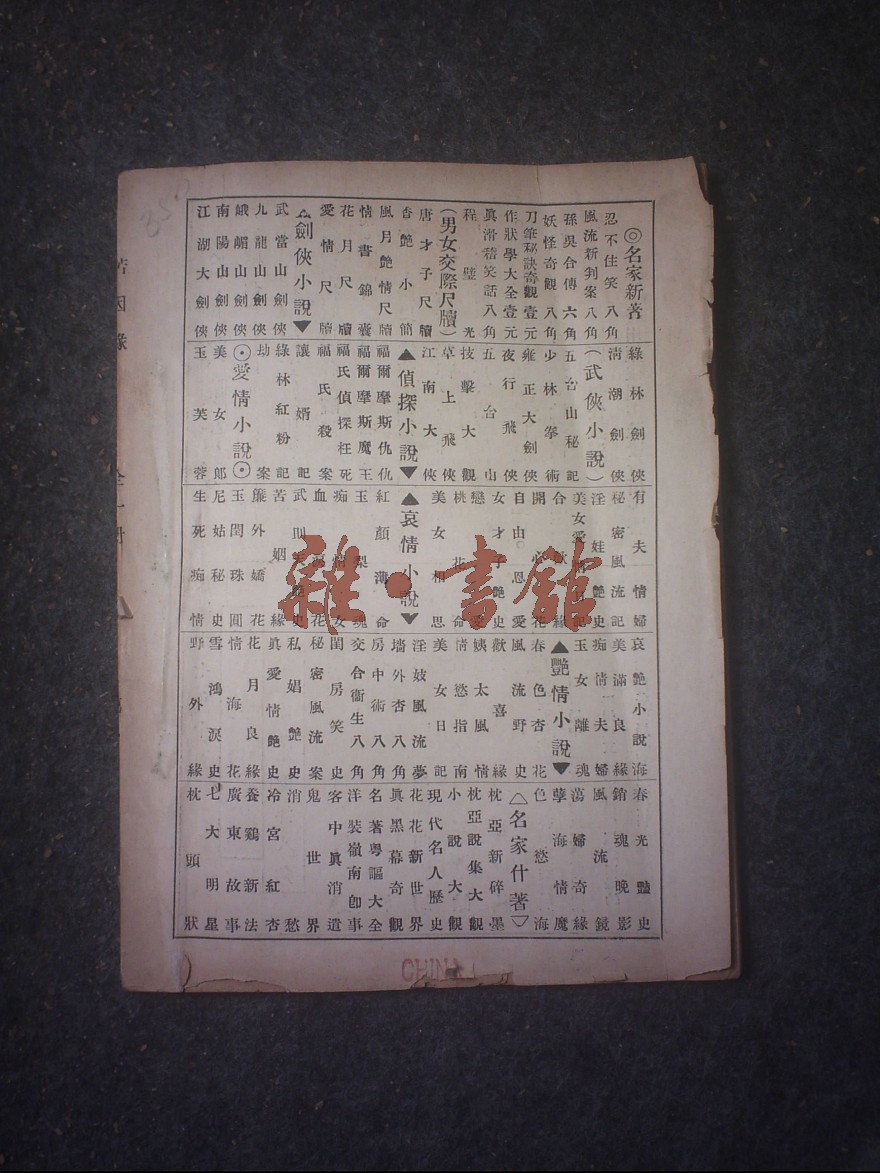 ◎名家新著
忍不住笑 八角
風流新判案八角
孫吳合傳 六角
妖怪奇觀 八角
刀筆秘訣奇觀壹元
作狀學大全壹元
眞滑稽笑話八角
程璧光
(男女交際尺牘)
唐才子尺牘
香艷小簡
風月艷情尺牘
情書錦囊
花月尺牘
愛情尺牘
▲劍俠小說▼
武當山劍俠
九龍山劍俠
峨嵋山劍俠
南陽山劍俠
江湖大劍俠
綠林劍俠
清潮劍俠
(武俠小說)
五台山秘記
少林拳術
雍正大劍俠
夜行飛俠
五台山
技擊大觀
草上飛俠
江南大俠
▲偵探小說▼
福爾摩斯仇仇
福爾摩斯魔王
福氏偵探枉死
福氏殺案
讓婿記
綠林紅粉記
劫案
⊙愛情小說⊙
美女郎
玉芙蓉
有夫情婦
秘密風流記
淫娃艷史
美女愛
合歡緣
開心花
自由恩愛
女才子艷史
戀愛
桃花命
美女相思
▲哀情小說▼
紅顏薄命
玉梨魂
痴情女
血淚花
武則天艷史
苦姻緣
簾外嬌花
玉閨珠圓
尼姑秘史
生死痴情
哀艷小說海
美滿良緣
痴情夫婦
玉女離魂
▲艷情小說▼
春色杏花
風流野史
歡喜緣
姨太風情
情慾指南
美女日記
淫妓風流夢
墻外杏八角
房中術八角
交合衞生八角
閨房笑史
秘密風流案
私娼艷史
眞愛情艷史
花月良緣
情海花
雪鴻淚史
野外緣
春光豔史
銷魂晚影
風流鏡
蕩婦奇緣
孽海情魔
色慾海
△名家什著▽
枕亞新碎墨
枕亞說集大觀
小說大觀
現代名人歷史
花花新世界
眞黑幕奇觀
名著粤謳大全
洋裝嶺南卽事
客中眞消遣
鬼世界
消愁
冷宮紅杏
養鷄新法
廣東故事
七大明星
枕頭狀
雜·書館